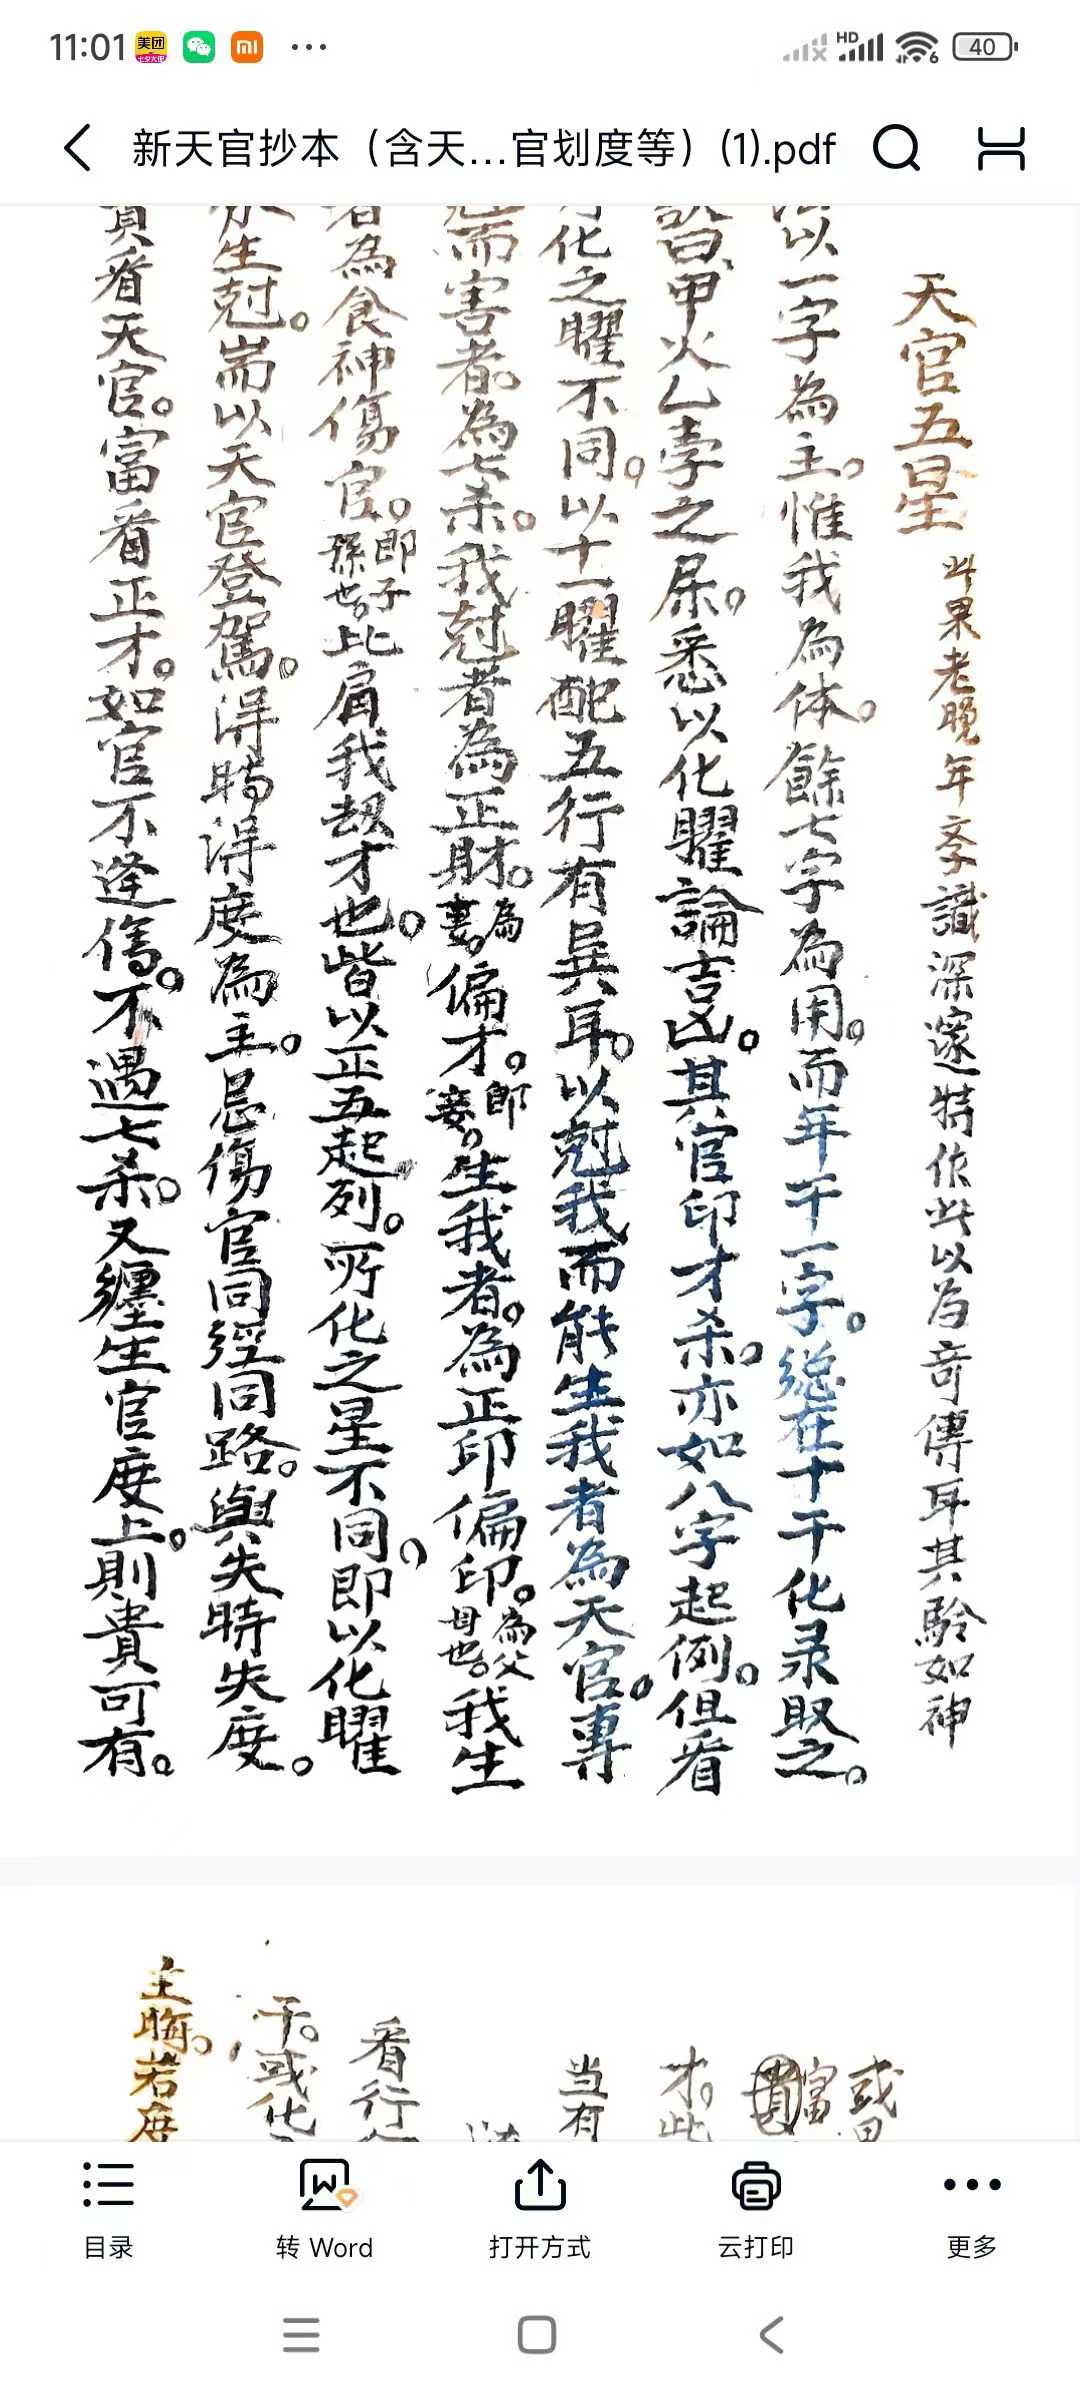 11:01 美团 七夕大促 ··· HD 6 40
新天官抄本（含天...官划度等）(1).pdf
天官五星 此果老晚年李識深邃特作此以為奇傳耳其驗如神
以一字為主。惟我為体。餘七字為用。而年干一字。縂在十干化录取之。
訣曰、甲火乙孛之屎。悉以化曜論吉凶。其官印才杀。亦如八字起例。但看
化之曜不同。以十一曜配五行有異耳。以尅我而能生我者為天官。專
尅而害者。為七杀。我尅者為正財。為妻。偏才。即妾。生我者。為正印偏印。為父母也。我生
者為食神傷官。即子孫也。比肩我刼才也。皆以正五起列。所化之星不同，即以化曜
生尅。耑以天官登駕。淂時淂度為主。忌傷官同経同路。與失時失度。
貴看天官。富看正才。如官不逢傷。不遇七杀。又纏生官度上。則貴可有。
或
富貴
才。此
当有
看行
干。或化
主晦。若度
目录 转 Word 打开方式 云打印 更多